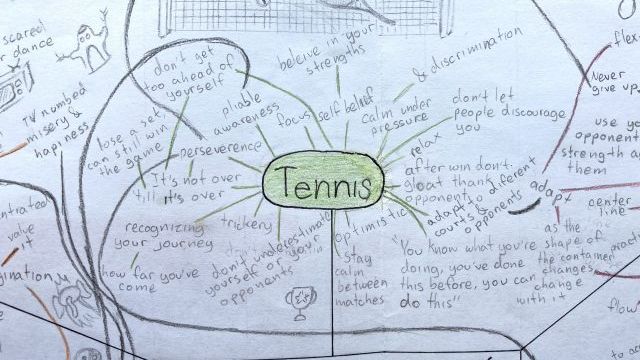 scared
r dance
TV numbed
misery &
hapiness
don't get
too ahead of
yourself
believe in your
strengths
& discrimination
flex
Never
give up
pliable
awareness
focus
self belief
calm under
pressure
don't let
people discourage
you
lose a set,
can still win
the game
perseverence
relax
use yo
opponent
strength a
them
It's not over
till it's over
Tennis
after win don't
gloat thank
opponent
adapt to different
courts &
opponents
adapt
center
line
recognizing
your journey
how far you've
come
trickery
don't underestimate
yourself or your
opponents
optimistic
stay
calm
between
matches
"You know what you're
doing, you've done
this before, you can
do this"
as the
shape of
the container
changes,
change
with it
entrated
value
it
gination
flow